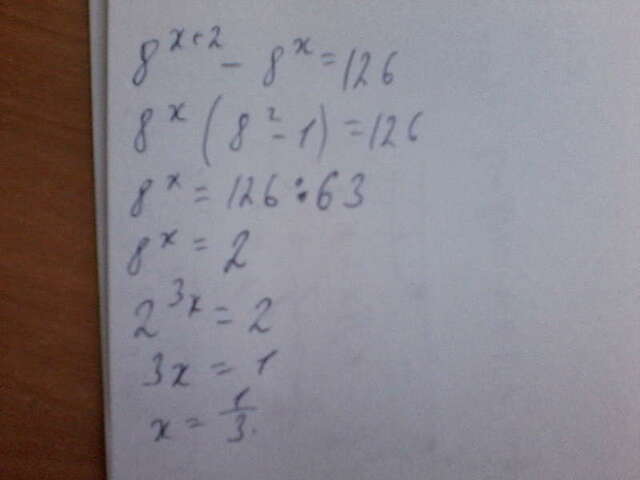 8^{x+2} - 8^x = 126
8^x (8^2 - 1) = 126
8^x = 126 : 63
8^x = 2
2^{3x} = 2
3x = 1
x = \frac{1}{3}.